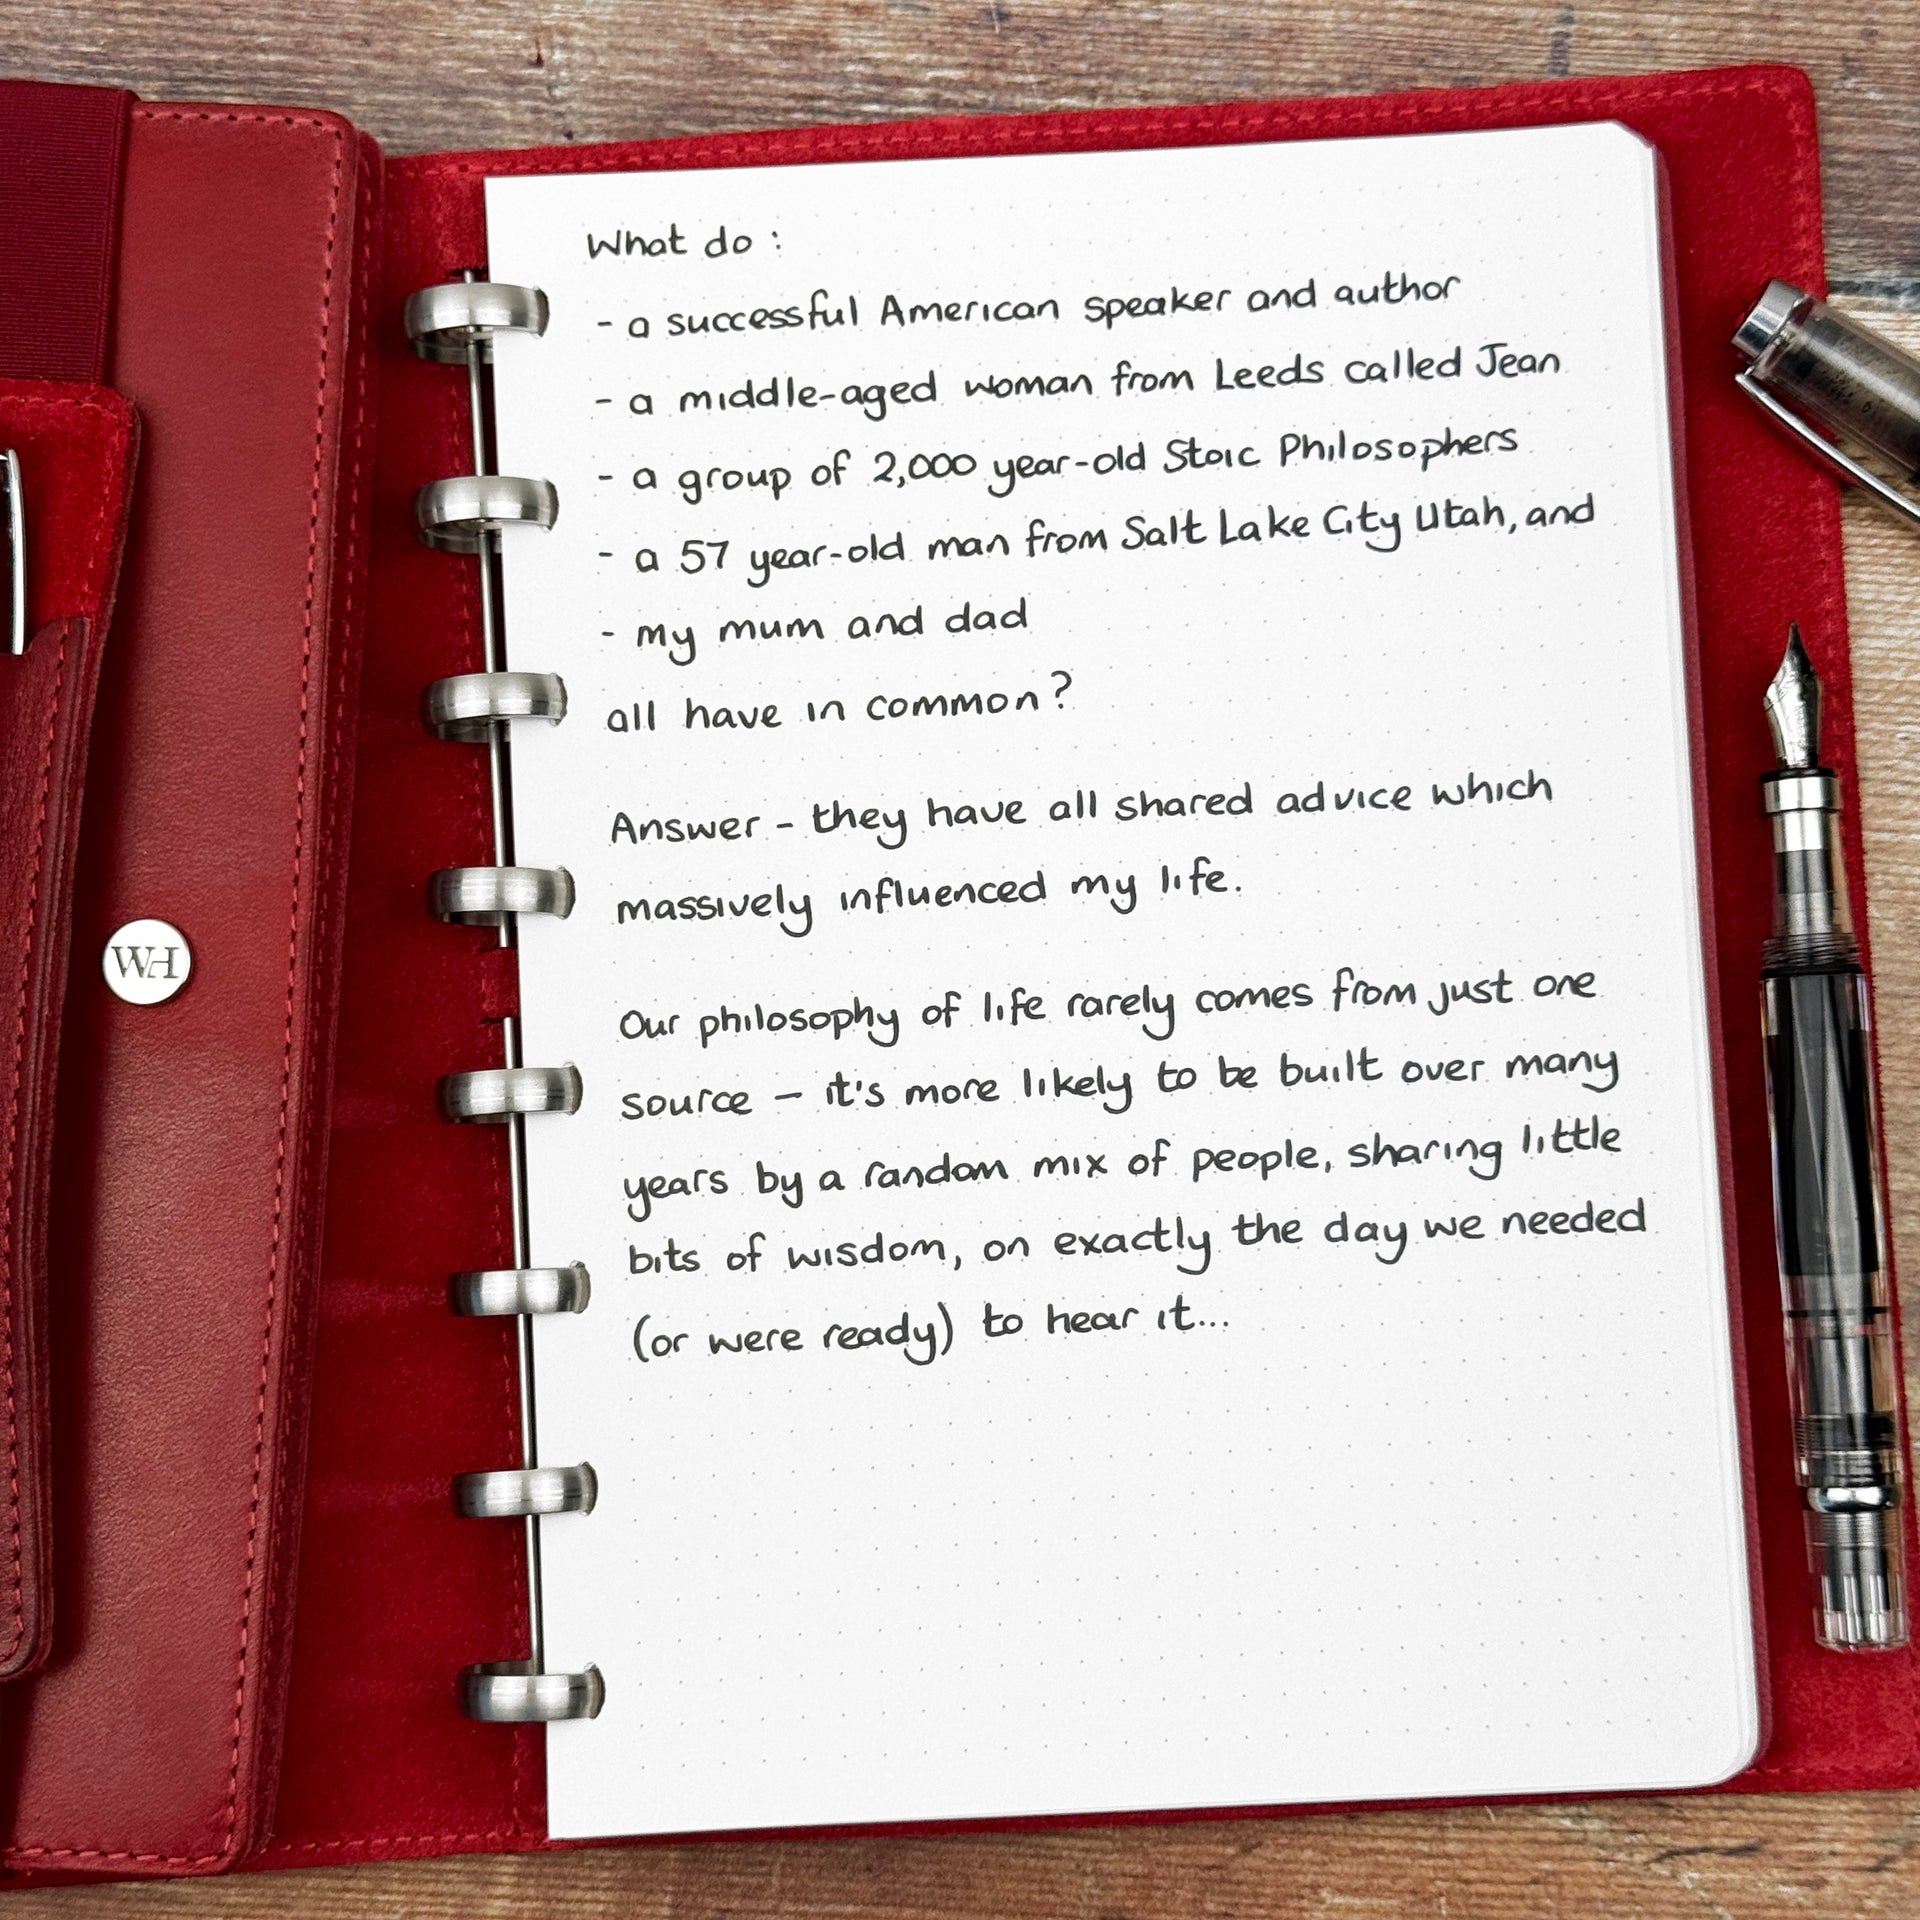 What do :
- a successful American speaker and author
- a middle-aged woman from Leeds called Jean
- a group of 2,000 year-old Stoic Philosophers
- a 57 year-old man from Salt Lake City Utah, and
- my mum and dad
all have in common?
Answer - they have all shared advice which
massively influenced my life.
Our philosophy of life rarely comes from just one
source - it's more likely to be built over many
years by a random mix of people, sharing little
bits of wisdom, on exactly the day we needed
(or were ready) to hear it...
WH